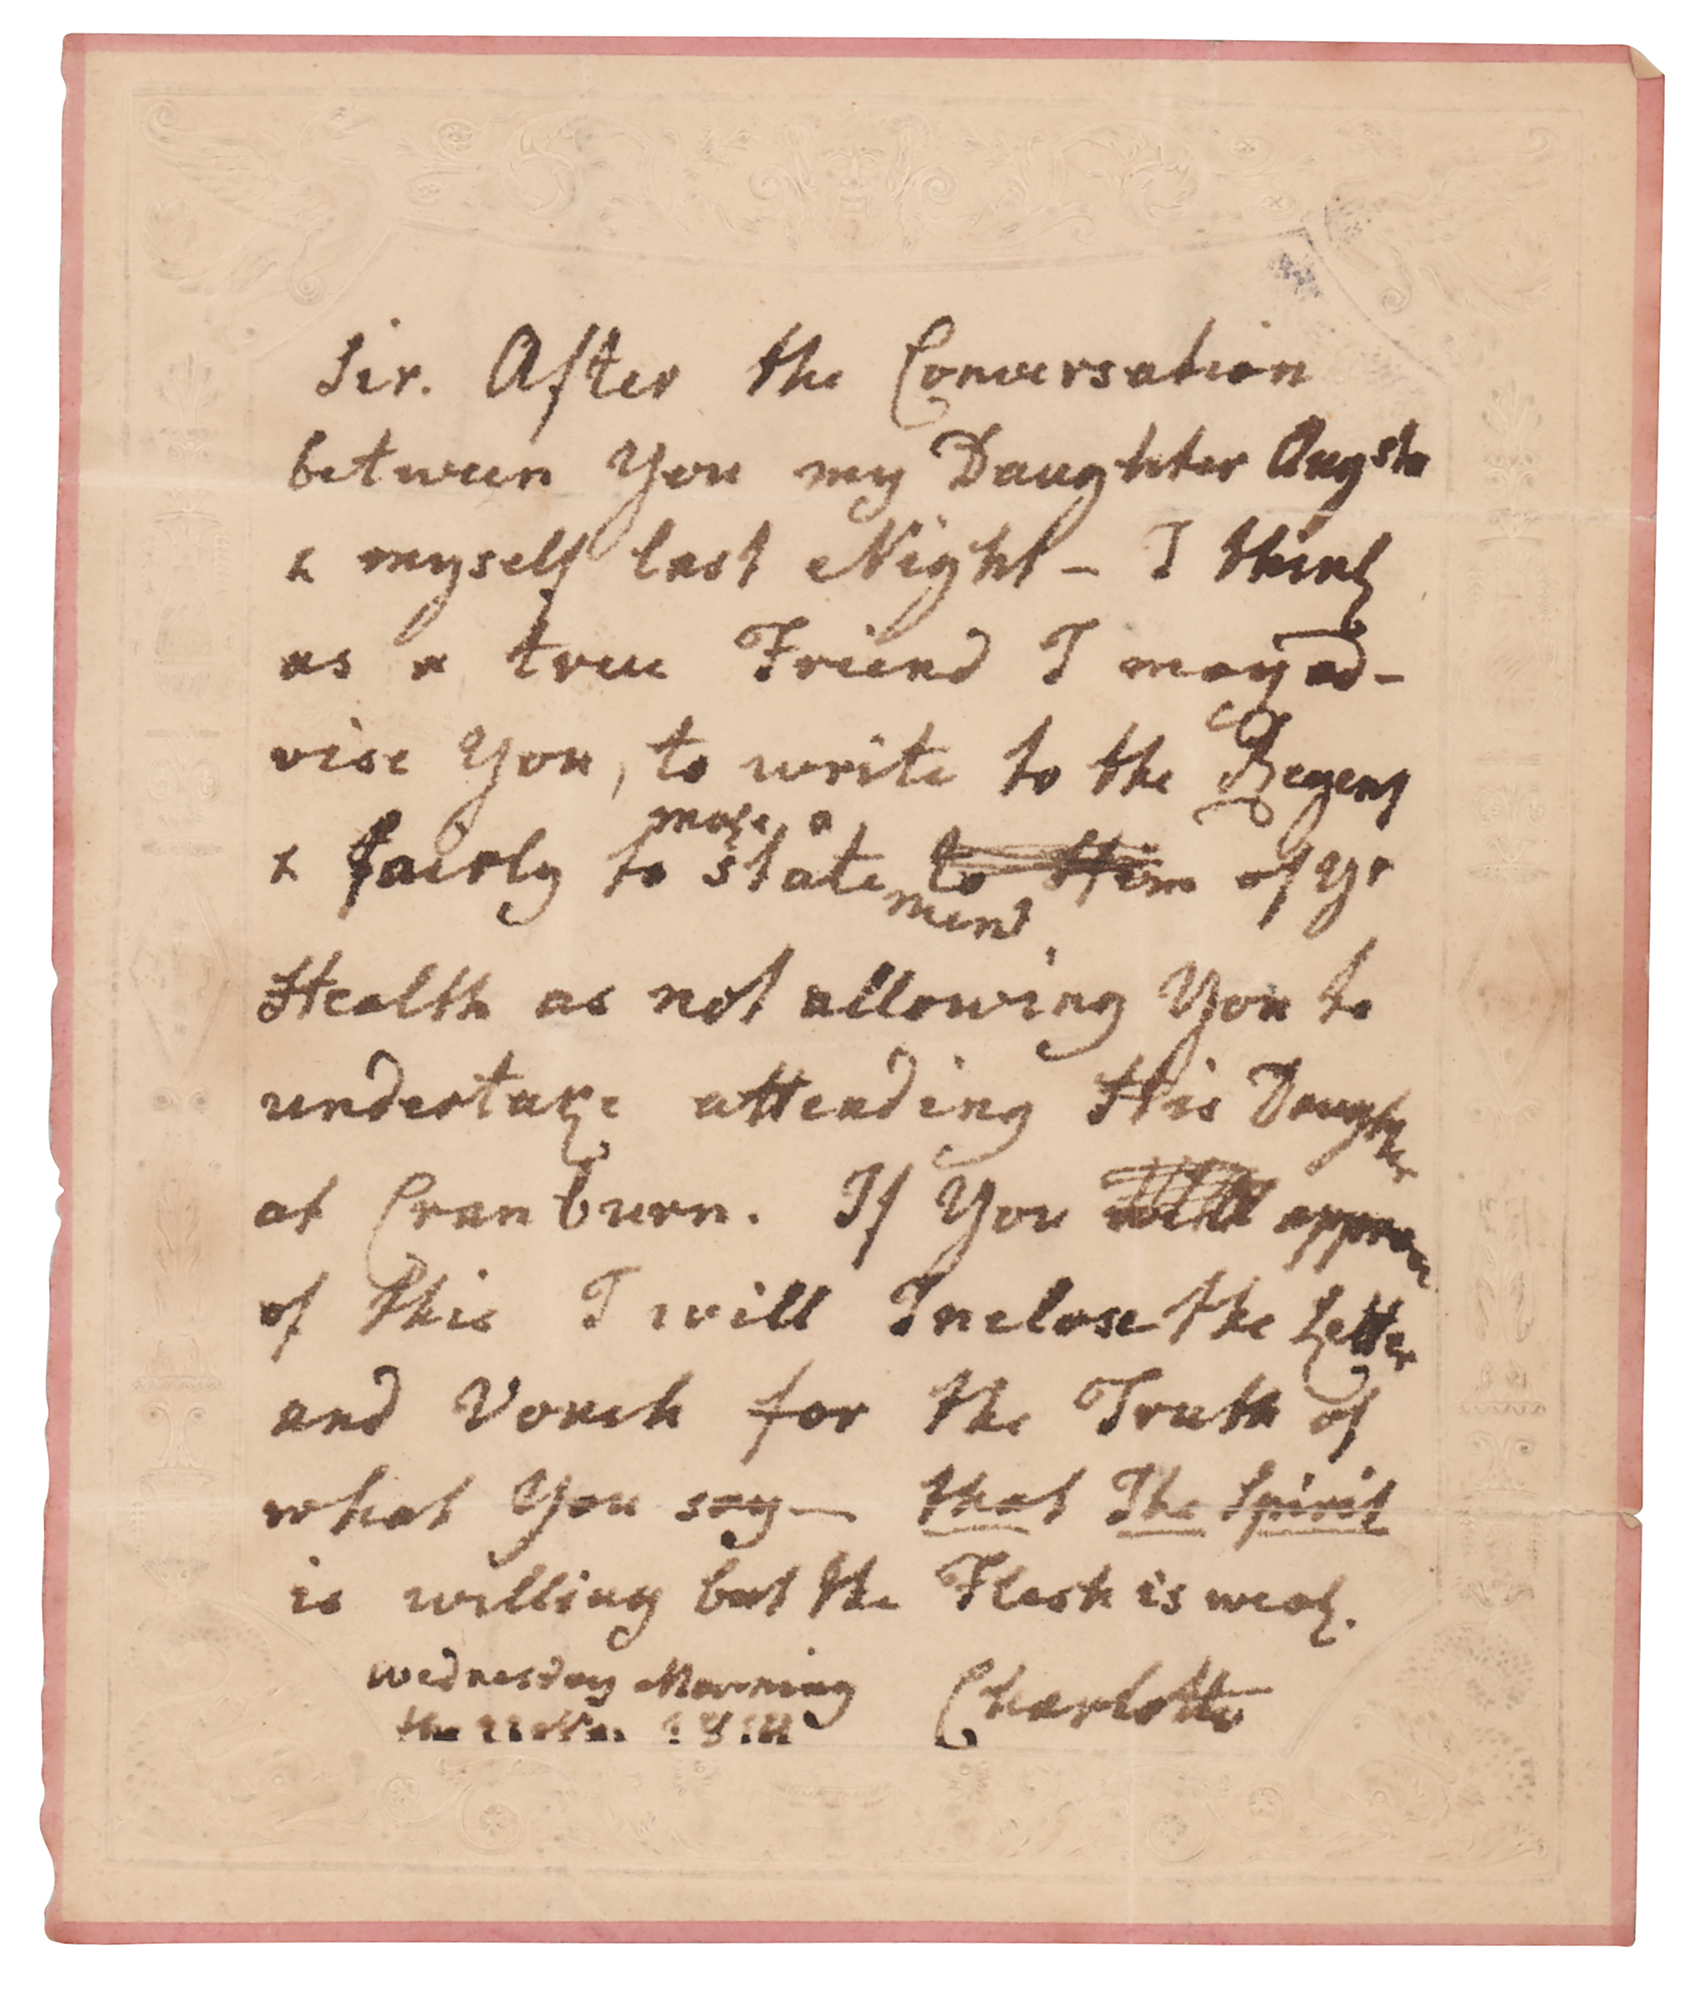 Sir. After the Conversation
between You my Daughter Augsta
& myself last Night – I think
as a true Friend I may ad-
vise You, to write to the Regent
& fairly to make a statement to Him of Yr
Health as not allowing You to
undertake attending His Daughter
at Cranburn. If You will approve
of this I will Inclose the Letter
and Vouch for the Truth of
what You say — that The Spirit
is willing but the Flesh is weak.
Wednesday Morning Charlotte
the